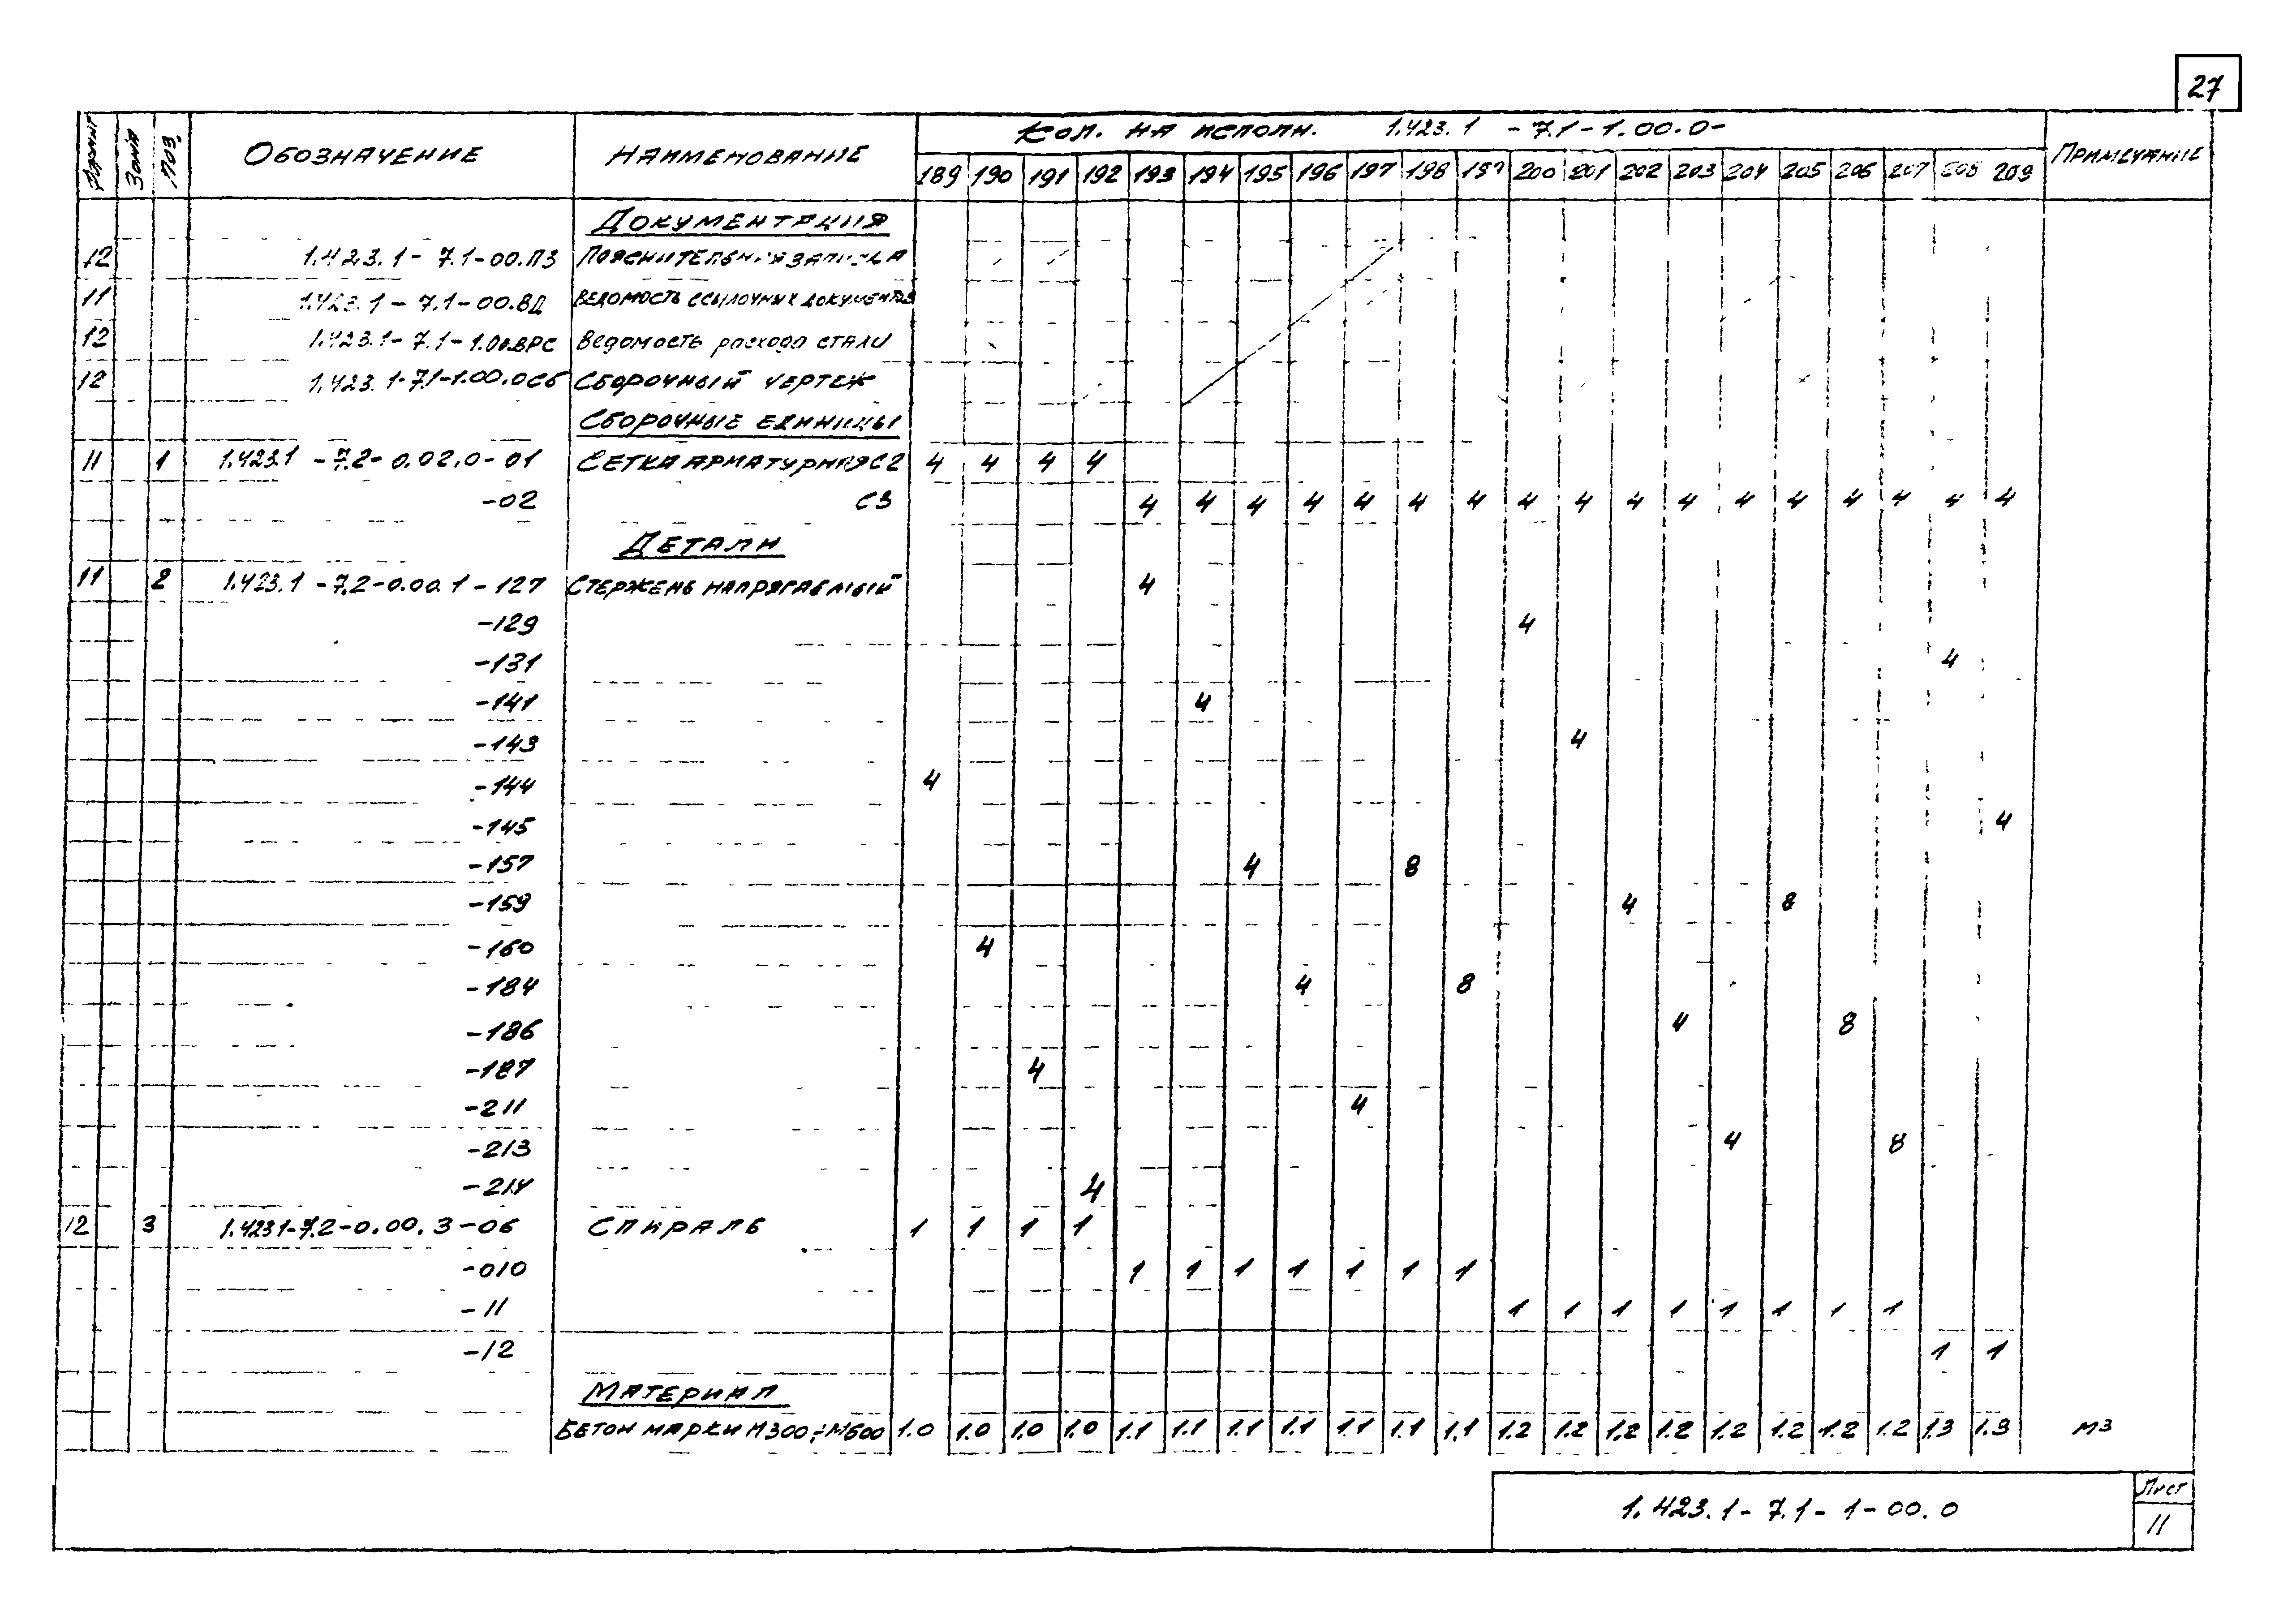 27
Формат Зона Поз. Обозначение Наименование Кол. на исполн. 1.423.1 -7.1-1.00.0- Примечание
189 190 191 192 193 194 195 196 197 198 199 200 201 202 203 204 205 206 207 208 209
Документация
12 1.423.1-7.1-00.ПЗ Пояснительная записка
11 1.423.1-7.1-00.ВД Ведомость ссылочных документов
12 1.423.1-7.1-1.00.ВРС Ведомость расхода стали
12 1.423.1-7.1-1.00.0СБ Сборочный чертеж
Сборочные единицы
11 1 1.423.1-7.2-0.02.0-01 Сетка арматурная С2 4 4 4 4
-02 С3 4 4 4 4 4 4 4 4 4 4 4 4 4 4 4 4 4
Детали
11 2 1.423.1-7.2-0.00.1-127 Стержень напрягаемый 4
-129 4
-131 4
-141 4
-143 4
-144 4
-145 4
-157 4 8
-159 4 8
-160 4
-184 4 8
-186 4 8
-187 4
-211 4
-213 4 8
-214 4
12 3 1.423.1-7.2-0.00.3-06 Спираль 1 1 1 1
-010 1 1 1 1 1 1 1
-11 1 1 1 1 1 1 1 1
-12 1 1
Материал
Бетон марки М300÷М600 1.0 1.0 1.0 1.0 1.1 1.1 1.1 1.1 1.1 1.1 1.1 1.2 1.2 1.2 1.2 1.2 1.2 1.2 1.2 1.3 1.3 м3
1.423.1-7.1-1-00.0
Лист
11